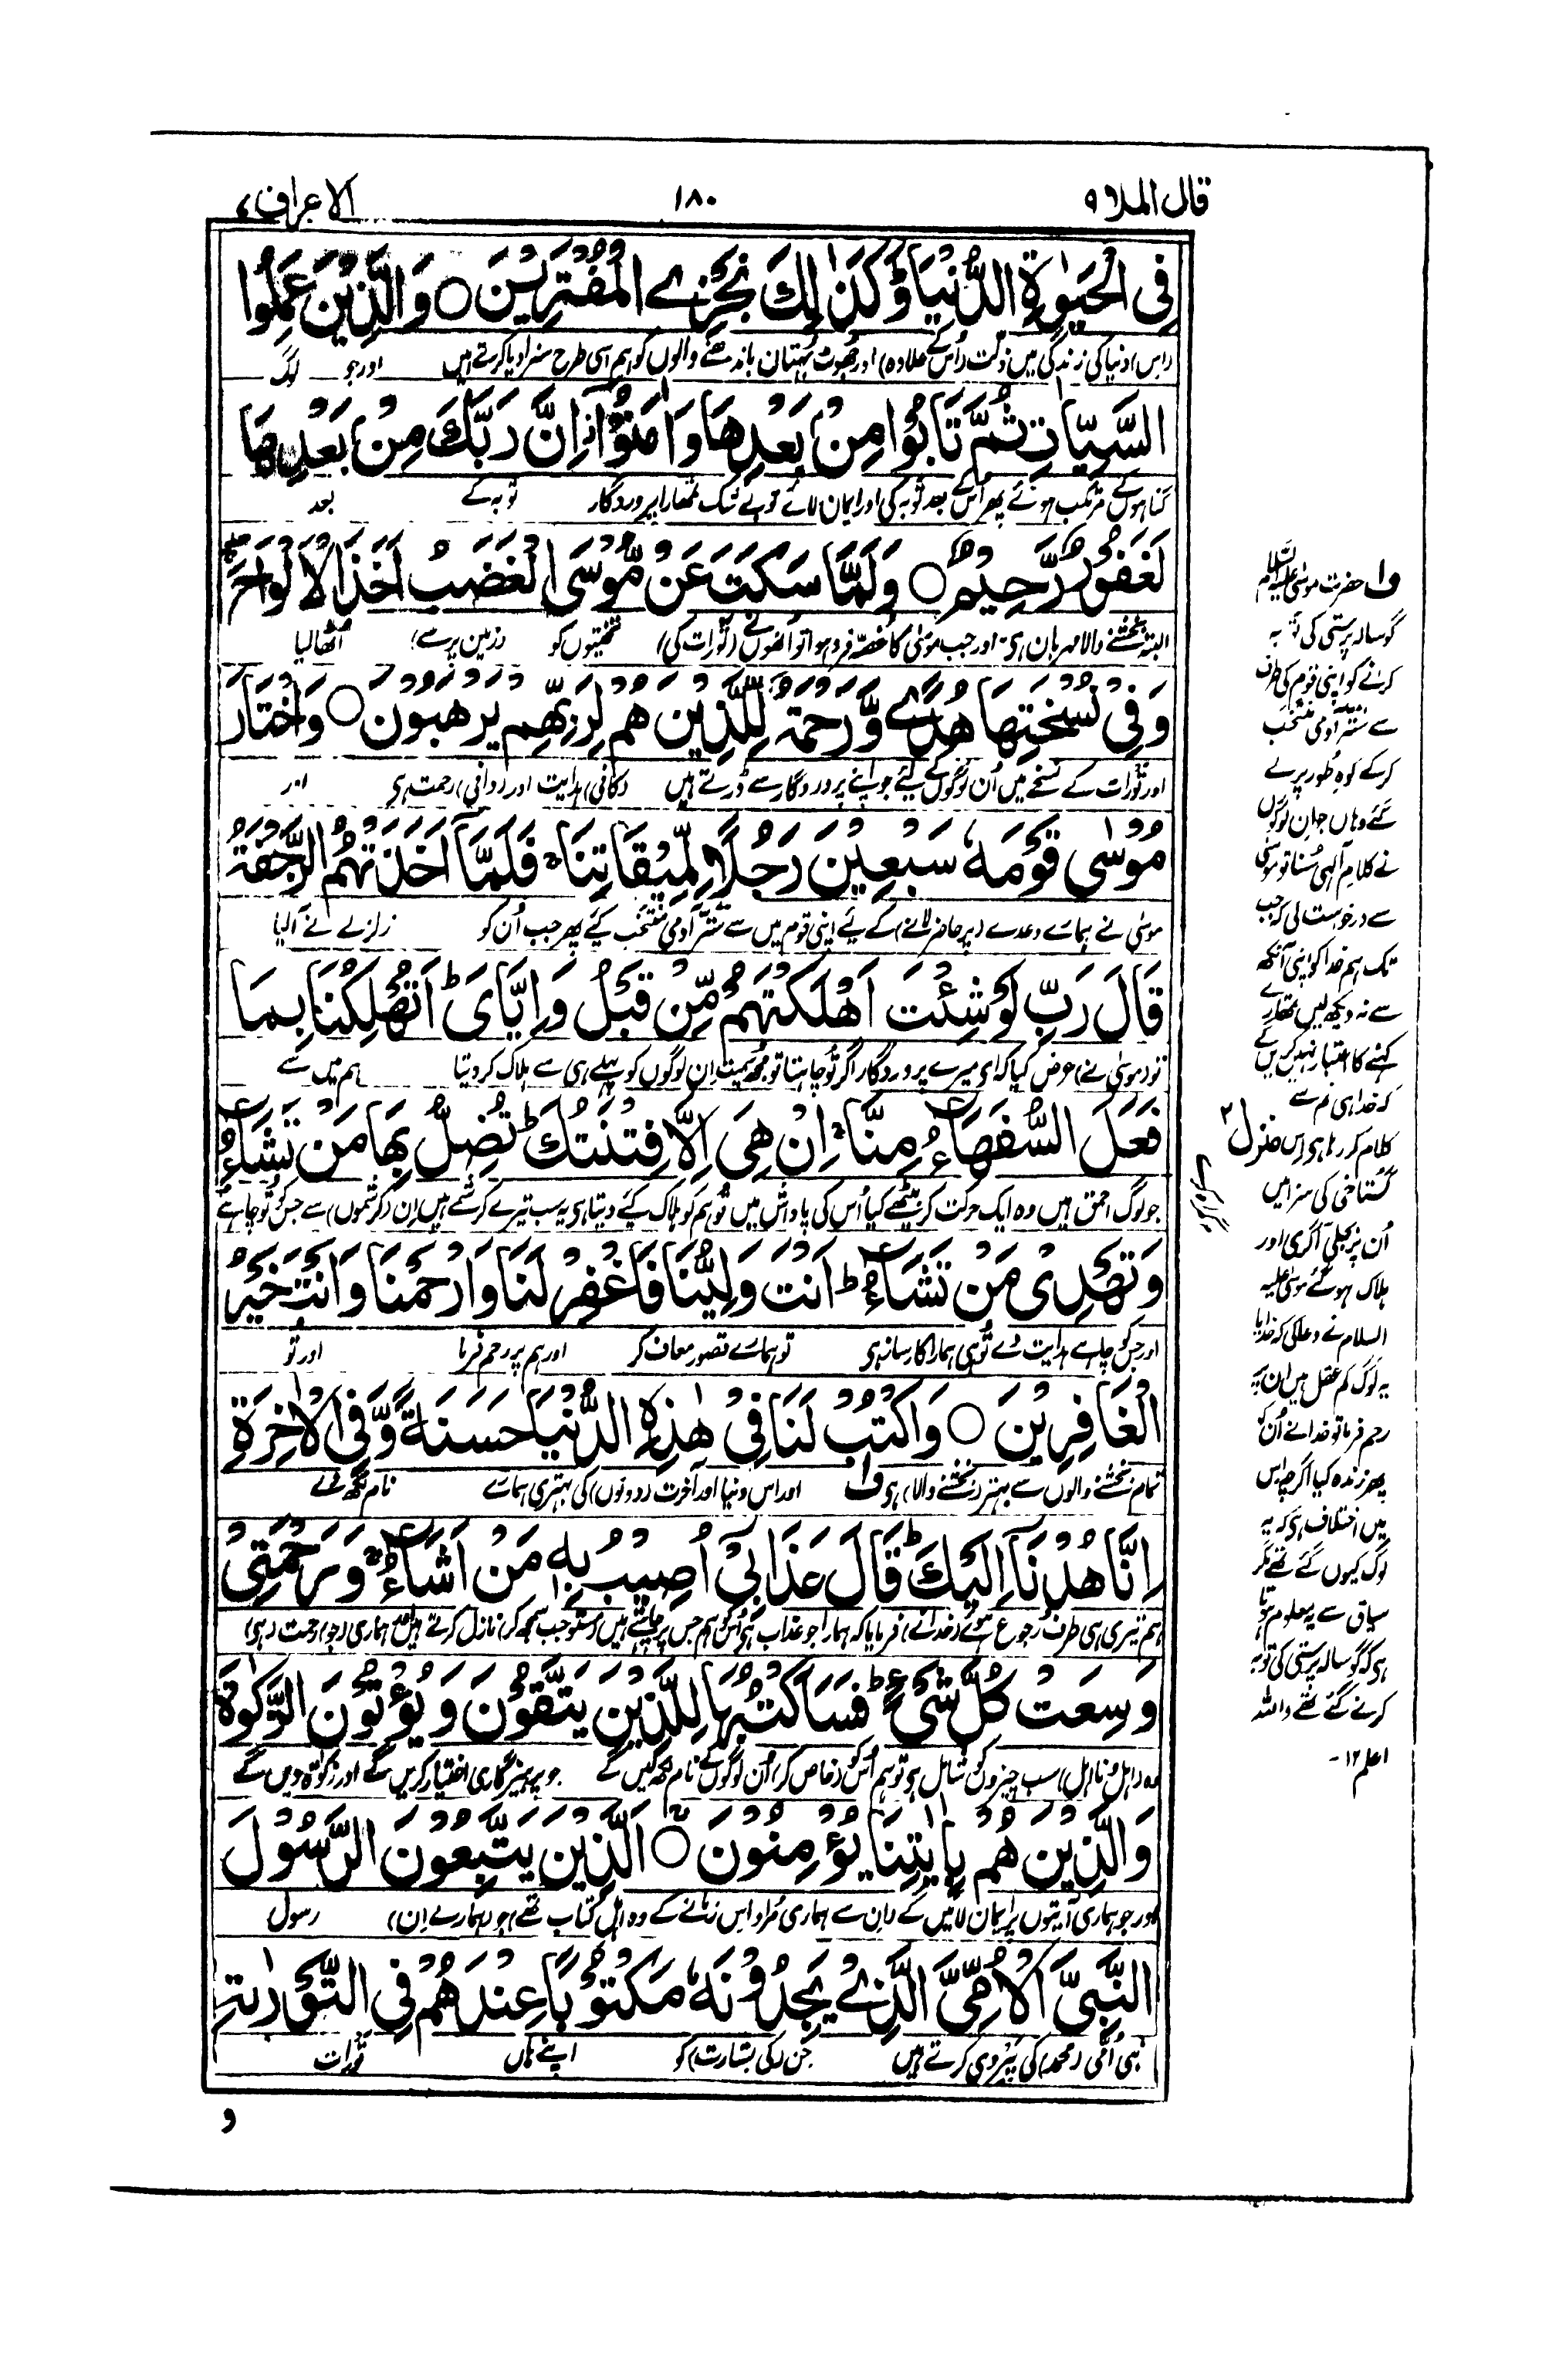 قال الملا ۹
۱۸۰
الاعراف ۷
فِی الْحَیٰوةِ الدُّنْیَاؕ وَكَذٰلِكَ نَجْزِے الْمُفْتَرِیْنَ ○ وَالَّذِیْنَ عَمِلُوا
(اس) دنیا کی زندگی میں ذلت (اُس کے علاوہ) اور جھوٹ بُہتان باندھنے والوں کو ہم اسی طرح سزا دیا کرتے ہیں اور جو لوگ
السَّیِّاٰتِ ثُمَّ تَابُوْا مِنْۢ بَعْدِهَا وَاٰمَنُوْۤا اِنَّ رَبَّكَ مِنْۢ بَعْدِهَا
گناہوں کے مرتکب ہوئے پھر اُس کے بعد توبہ کی اور ایمان لائے تو بے شک تمھارا پروردگار توبہ کے بعد
لَغَفُوْرٌ رَّحِیْمٌ ○ وَلَمَّا سَكَتَ عَنْ مُّوْسَى الْغَضَبُ اَخَذَ الْاَلْوَاحَ
البتہ بخشنے والا مہربان ہی۔ اور جب موسٰی کا غصّہ فرو ہوا تو اُنھوں نے (تورات کی) تختیوں کو (زمین پر سے) اُٹھالیا
وَفِیْ نُسْخَتِهَا هُدًے وَّرَحْمَةٌ لِّلَّذِیْنَ هُمْ لِرَبِّهِمْ یَرْهَبُوْنَ ○ وَاخْتَارَ
اور تورات کے نسخے میں اُن لوگوں کے لیئے جو اپنے پروردگار سے ڈرتے ہیں (کافی) ہدایت اور (وافی) رحمت ہی اور
مُوْسٰى قَوْمَهٗ سَبْعِیْنَ رَجُلًا لِّمِیْقَاتِنَاۚ فَلَمَّاۤ اَخَذَتْهُمُ الرَّجْفَةُ
موسٰی نے ہمارے وعدے (پر حاضر لانے) کے لیے اپنی قوم میں سے ستّر آدمی منتخب کیئے پھر جب اُن کو زلزلے نے آلیا
قَالَ رَبِّ لَوْ شِئْتَ اَهْلَكْتَهُمْ مِّنْ قَبْلُ وَاِیَّایَؕ اَتُهْلِكُنَا بِمَا
تو (موسٰی نے) عرض کیا کہ ای میرے پروردگار اگر تُو چاہتا تو مجھ سمیت اِن لوگوں کو پہلے ہی سے ہلاک کر دیتا ہم میں سے
فَعَلَ السُّفَهَآءُ مِنَّاۚ اِنْ هِیَ اِلَّا فِتْنَتُكَؕ تُضِلُّ بِهَا مَنْ تَشَآءُ
جو لوگ احمق ہیں وہ ایک حرکت کر بیٹھے کیا اُس کی پاداش میں تُو ہم کو ہلاک کیئے دیتا ہی یہ سب تیرے کرشمے ہیں اِن (کرشموں) سے جس کو تُو چاہے
وَتَهْدِیْ مَنْ تَشَآءُؕ اَنْتَ وَلِیُّنَا فَاغْفِرْ لَنَا وَارْحَمْنَا وَاَنْتَ خَیْرُ
اور جس کو چاہے ہدایت دے تُو ہی ہمارا کارساز ہی تو ہمارے قصور معاف کر اور ہم پر رحم فرما اور تُو
الْغَافِرِیْنَ ○ وَاكْتُبْ لَنَا فِیْ هٰذِهِ الدُّنْیَا حَسَنَةً وَّفِی الْاٰخِرَةِ
تمام بخشنے والوں سے بہتر (بخشنے والا) ہی ف۱ اور اس دنیا اور آخرت (دونوں) کی بہتری ہمارے نام لکھ دے
اِنَّا هُدْنَاۤ اِلَیْكَؕ قَالَ عَذَابِیْۤ اُصِیْبُ بِهٖ مَنْ اَشَآءُۚ وَرَحْمَتِیْ
ہم تیری ہی طرف رجوع ہوئے (خدا نے) فرمایا کہ ہمارا جو عذاب ہی اُس کو ہم جس پر چاہتے ہیں (مستوجب سمجھ کر) نازل کرتے ہیں اور ہماری (جو) رحمت (ہی)
وَسِعَتْ كُلَّ شَیْءٍؕ فَسَاَكْتُبُهَا لِلَّذِیْنَ یَتَّقُوْنَ وَیُؤْتُوْنَ الزَّكٰوةَ
وہ (اہل و نااہل) سب چیزوں کو شامل ہی تو ہم اُس کو (خاص کر) اُن لوگوں کے نام لکھیں گے جو پرہیزگاری اختیار کریں گے اور زکوٰة دیں گے
وَالَّذِیْنَ هُمْ بِاٰیٰتِنَا یُؤْمِنُوْنَ ○ اَلَّذِیْنَ یَتَّبِعُوْنَ الرَّسُوْلَ
اور جو ہماری آیتوں پر ایمان لائیں گے (ان سے ہماری مُراد اس زمانے کے وہ اہل کتاب تھے) جو (ہمارے ان) رسول
النَّبِیَّ الْاُمِّیَّ الَّذِیْ یَجِدُوْنَهٗ مَكْتُوْبًا عِنْدَهُمْ فِی التَّوْرٰىةِ
نبی اُمّی (محمد) کی پیروی کرتے ہیں جن (کی بشارت) کو اپنے ہاں تورات
و
ف۱ حضرت موسٰی علیہ السلام
گوسالہ پرستی کی توبہ
کرانے کو اپنی قوم کی طرف
سے ستّر آدمی منتخب
کرکے کوہِ طور پر لے
گئے وہاں جو ان لوگوں
نے کلامِ الٰہی سُنا تو موسٰی
سے درخواست کی کہ جب
تک ہم خدا کو اپنی آنکھ
سے نہ دیکھ لیں تمھارے
کہنے کا اعتبار نہیں کریں گے
کہ خدا ہی تم سے
کلام کر رہا ہی اِس
منزل ۲
گُستاخی کی سزا میں
اُن پر بجلی آگری اور
ہلاک ہوگئے موسٰی علیہ
السلام نے دعا کی کہ خدایا
یہ لوگ کم عقل ہیں ان پر
رحم فرما تو خدا نے اُن کو
پھر زندہ کیا اگرچہ اس
میں اختلاف ہی کہ یہ
لوگ کیوں گئے تھے مگر
سیاق سے یہ معلوم ہوتا
ہی کہ گوسالہ پرستی کی توبہ
کرنے گئے تھے واللہ
اعلم ۱۲-